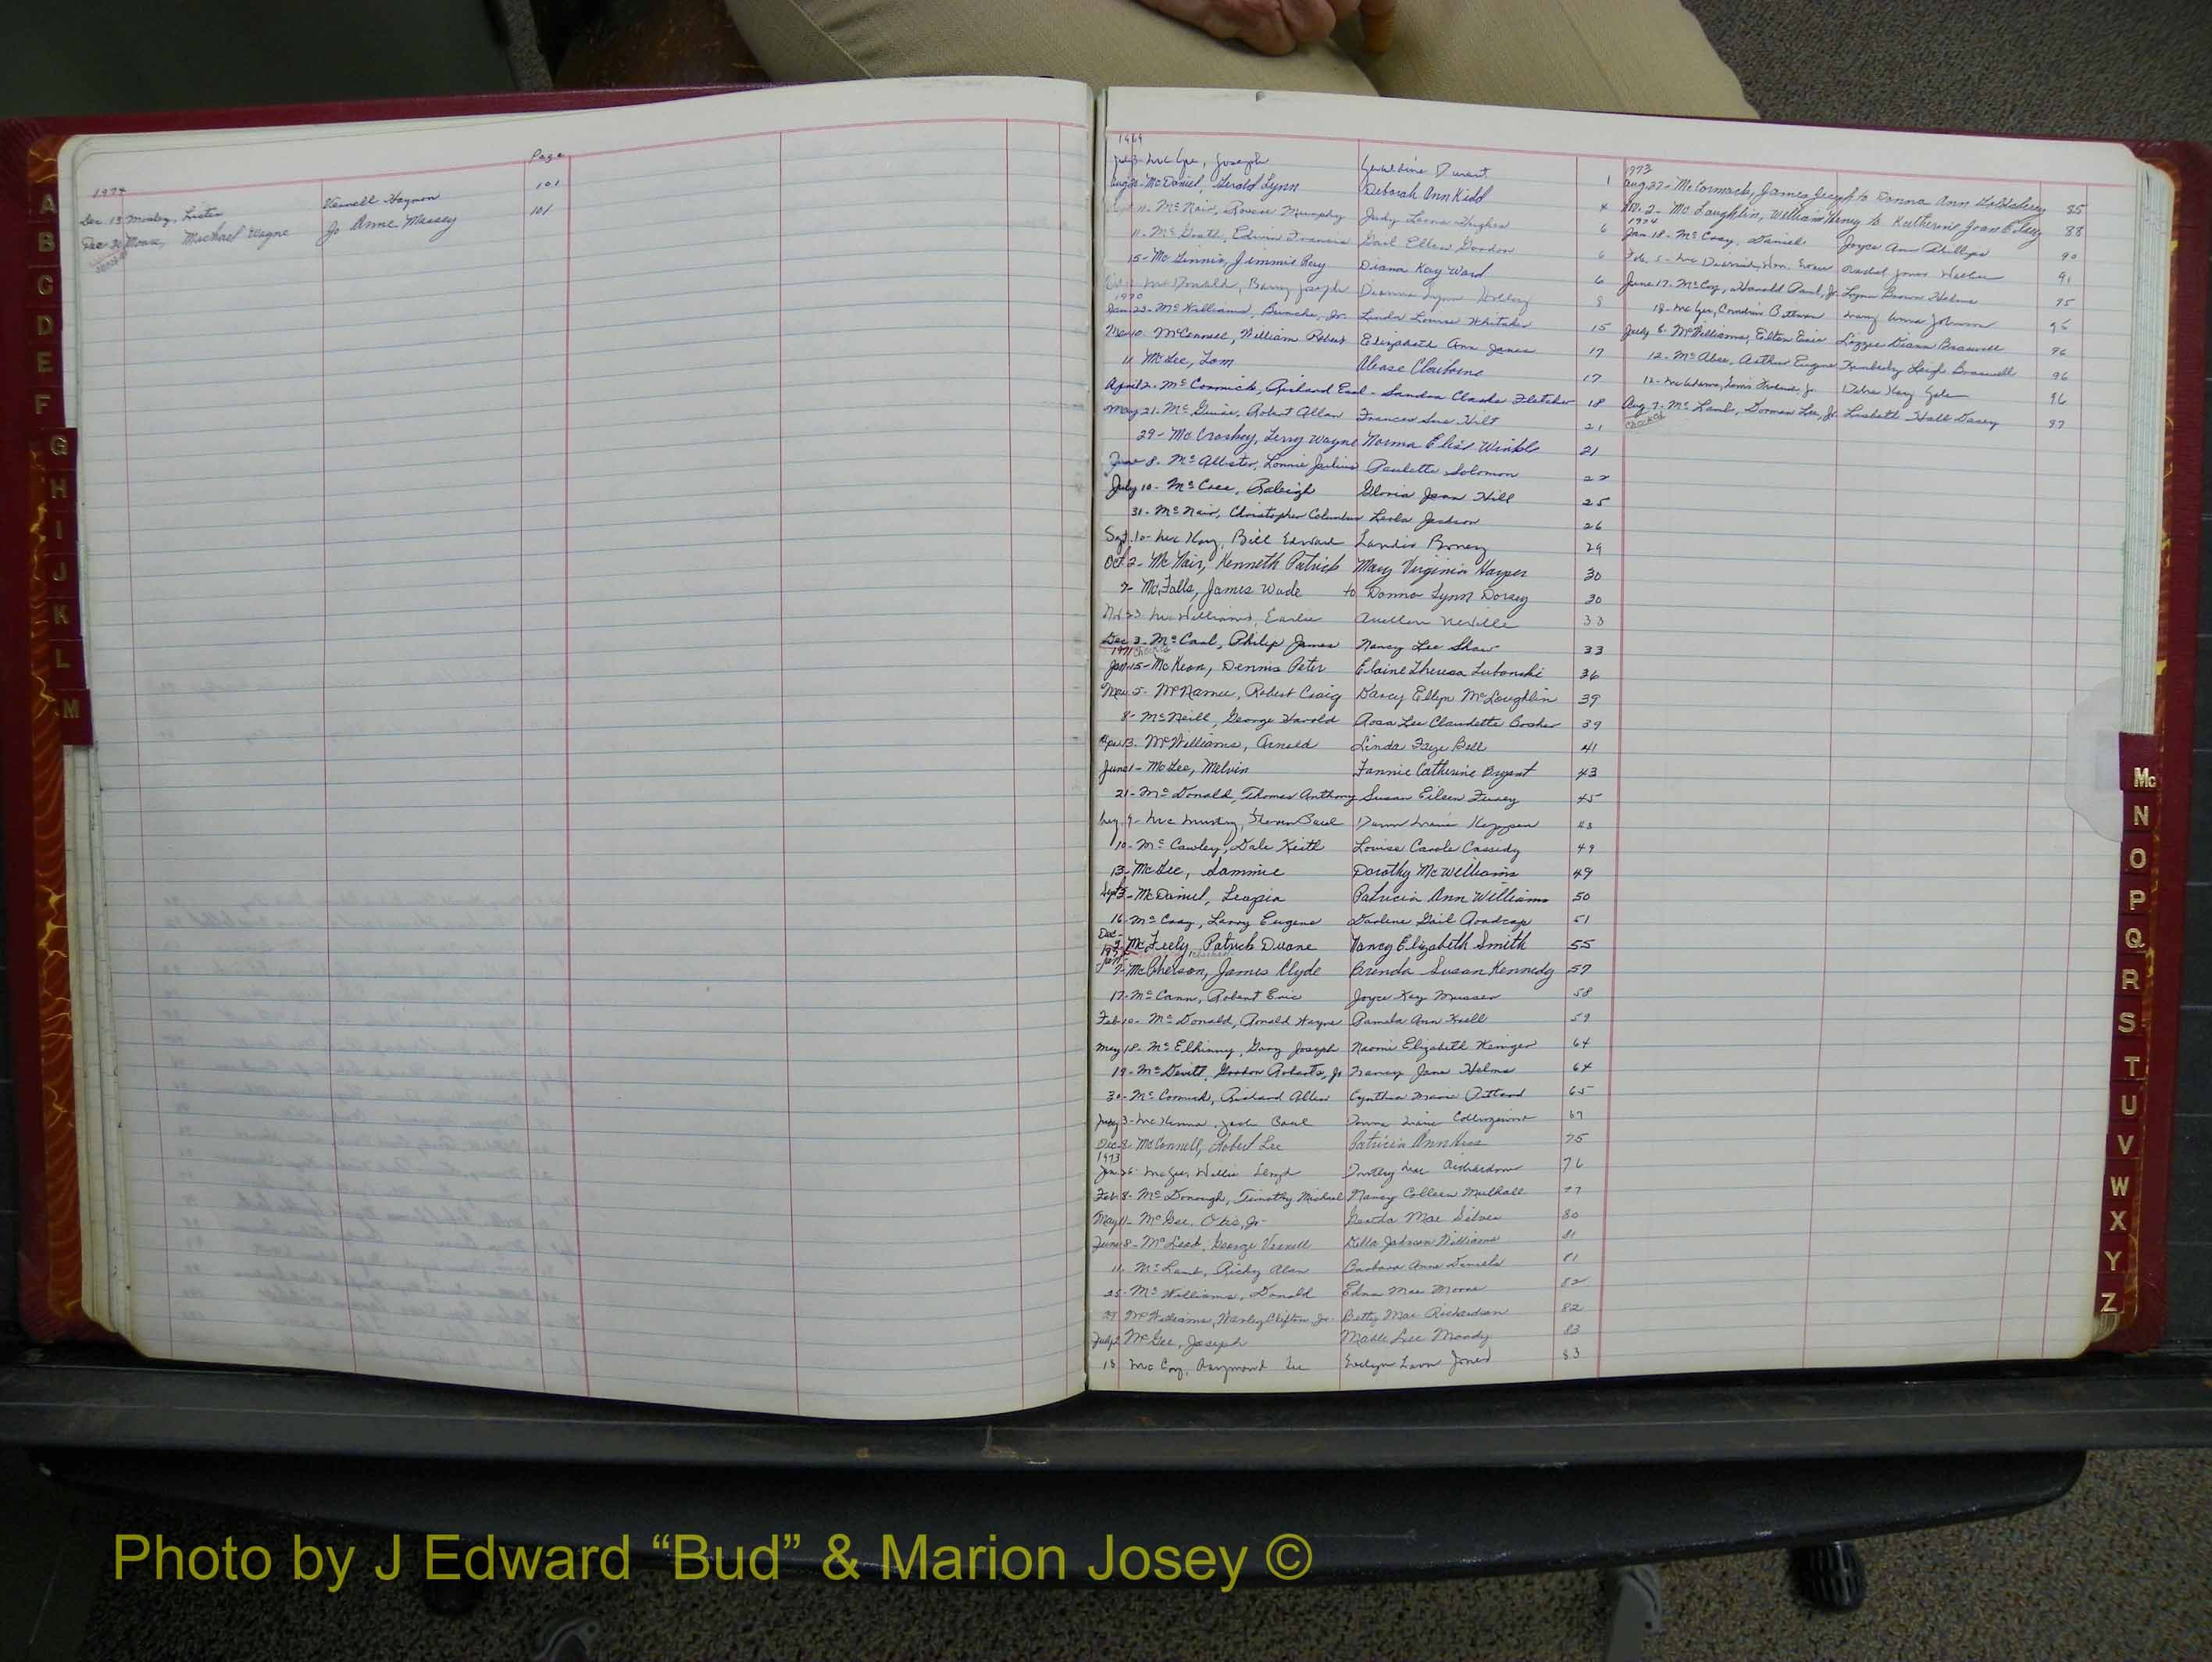 Page
1974
Dec. 13 Mosley, Lister Vernell Haynon 101
Dec. 20 Moose, Michael Wayne Jo Anne Massey 101
A
B
C
D
E
F
G
H
I
J
K
L
M
1969
Joseph Geraldine Durant 1
Aug 20- McDaniel, Gerald Lynn Deborah Ann Kidd 4
11- McNair, Roscoe Murphy Judy Hughes 6
11- McGrath, Edwin Francis Gail Ellen Gordon 6
15- McGinnis, Jimmie Ray Diana Kay Ward 6
McDonald, Barry Joseph Deanna Lynn 8
1970
Jan. 23- McWilliams, Jr. Linda Louise Whitaker 15
10- McConnell, William Robert Elizabeth Ann Jones 17
11 McGee, Tom Alease Claiborne 17
April 2- McCormick, Richard Earl - Sandra Clarke Fletcher 18
May 21- McGuire, Robert Allan Frances Sue Hilt 21
29- McCroskey, Terry Wayne Norma Elise Winkle 21
June 8- McAllister, Lonnie Julius Paulette Solomon 22
July 10- McCree, Raleigh Gloria Jean Hill 25
31- McNair, Christopher Columbus Leola Jackson 26
Sept. 10- McKoy, Bill Edward Landis Boney 29
Oct 2- McNair, Kenneth Patrick Mary Virginia Harper 30
7- McFalls, James Wade to Donna Lynn Dorsey 30
Nov 23 McWilliams, Earlie Neville 33
Dec 3- McCaul, Philip James Nancy Lee Shaw 33
1971 checked
Jan 15- McKeon, Dennis Peter Elaine Theresa Lubanski 36
Mar 5- McNamee, Robert Craig Darcy Ellyn McLoughlin 39
8- McNeill, George Harold Rosa Lee Claudette Bosher 39
Apr 13- McWilliams, Arnold Linda Faye Bell 41
June 1- McGee, Melvin Fannie Catherine Bryant 43
21- McDonald, Thomas Anthony Susan Eileen 45
Aug. 9- Steven Paul Dawn Marie 48
10- McCawley, Dale Keith Louise Carole Cassidy 49
13- McGee, Sammie Dorothy McWilliams 49
Sept 3- McDaniel, Leopia Patricia Ann Williams 50
16- McCray, Larry Eugene Darlene Gail Roadcap 51
Dec- 2- McFeely, Patrick Duane Nancy Elizabeth Smith 55
1972
Jan 7- McPherson, James Clyde Brenda Susan Kennedy 57
17- McCann, Robert Eric Joyce Kay Musser 58
Feb 10- McDonald, Ronald Wayne Pamela Ann Krell 59
May 18- McElhinny, Gary Joseph Naomi Elizabeth Weniger 64
19- McDevitt, Gordon Roberts, Jr Nancy Jane Helms 64
30- McCormick, Richard Allen Cynthia Marie Pittard 65
July 3- McKenna, Jack Paul Donna Marie Collingwood 67
Dec 8- McConnell, Robert Lee Patricia Ann Hess 75
1973
Jan 26- McGee, Willie Lloyd Dorothy Mae Richardson 76
Feb 8- McDonough, Timothy Michael Nancy Colleen Mulhall 77
May 11- McGee, Otis, Jr- Mae Silver 80
June 8- McLeod, George Vernell Della Johnson Williams 81
11- McLamb, Ricky Alan Barbara Anne Daniels 81
25- McWilliams, Donald Edna Mae Moore 82
29 McWilliams, Wesley Clifton, Jr. Betty Mae Richardson 82
July 2 McGee, Joseph Mable Lee Moody 83
18 McCoy, Raymond Lee Evelyn Jones 83
1973
Aug 27- McCormack, James Joseph to Donna Ann 85
Nov. 2- McLaughlin, William Henry to Katherine Joan 88
1974
Jan 18- McCray, Daniel Joyce Ann Phillips 90
Feb. 5- Rachel Jones 91
June 17- McCoy, Harold Paul, Jr. Lynn Brown Helms 95
18- McGee, Cornelius Mary Anna Johnson 95
July 6- McWilliams, Elton Lizzie Diann Braswell 96
12- McAbee, Arthur Eugene Kimberly Leigh Braswell 96
12- McAdams, Jr Debra Kay 96
Aug 7- McLamb, Dorman Lee, Jr Lisbeth Hall Dasey 97
checked
Mc
N
O
P
Q
R
S
T
U
V
W
X
Y
Z
Photo by J Edward “Bud” & Marion Josey ©